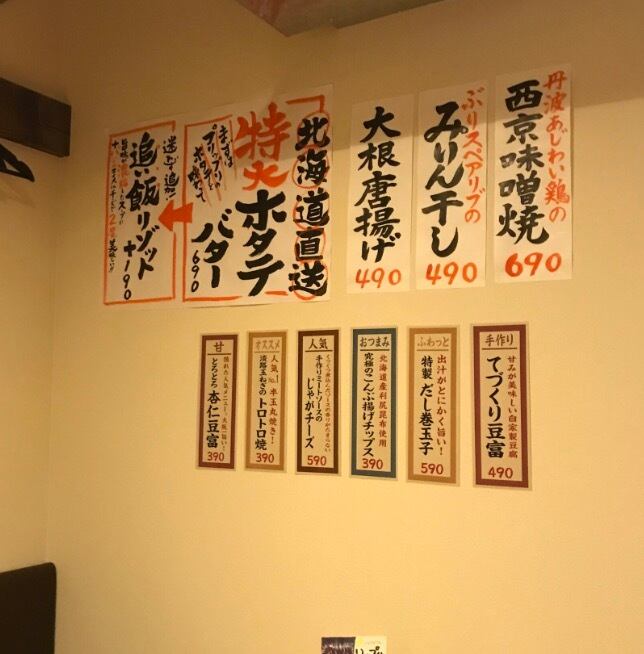 丹波あじわい鶏の
西京味噌焼
690
ぶりスペアリブの
みりん干し
490
大根唐揚げ
490
北海道直送
特大ホタテ
バター
690
まずは
プリップリの
追い飯リゾット
+190
手作り
甘みが美味しい自家製豆腐
てづくり豆富
490
ふわっと
出汁がとにかく旨い！
特製 だし巻玉子
590
おつまみ
北海道産利尻昆布使用
究極のこんぶ揚げチップス
390
人気
手作りミートソースの
じゃがチーズ
590
オススメ
人気No.1 半玉丸焼き！
淡路玉ねぎのトロトロ焼
390
甘
とろとろ 杏仁豆富
390